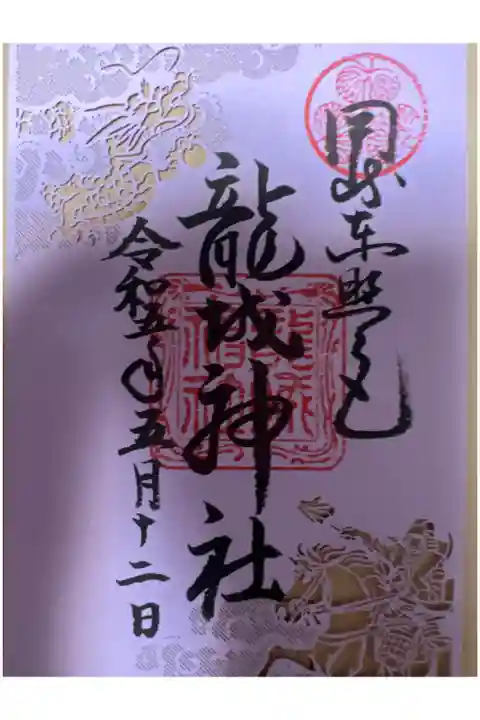 岡崎東照宮
龍城神社
令和五年五月十二日
龍城神社